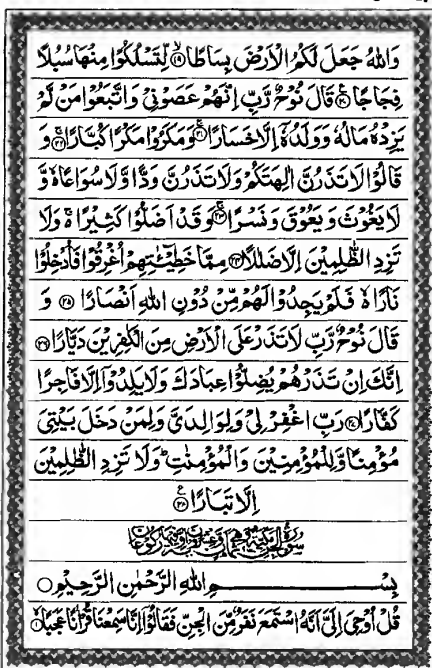 وَاللهُ جَعَلَ لَكُمُ الْاَرْضَ بِسَاطًا ۙ﴿۱۹﴾ لِّتَسْلُكُوْا مِنْهَا سُبُلًا
فِجَاجًا ﴿۲۰﴾ قَالَ نُوْحٌ رَّبِّ اِنَّهُمْ عَصَوْنِيْ وَاتَّبَعُوْا مَنْ لَّمْ
يَزِدْهُ مَالُهٗ وَوَلَدُهٗٓ اِلَّا خَسَارًا ﴿۲۱﴾ وَمَكَرُوْا مَكْرًا كُبَّارًا ﴿۲۲﴾ وَ
قَالُوْا لَا تَذَرُنَّ اٰلِهَتَكُمْ وَلَا تَذَرُنَّ وَدًّا وَّلَا سُوَاعًا ۙ وَّ
لَا يَغُوْثَ وَيَعُوْقَ وَنَسْرًا ﴿۲۳﴾ وَقَدْ اَضَلُّوْا كَثِيْرًا ۚ وَلَا
تَزِدِ الظّٰلِمِيْنَ اِلَّا ضَلٰلًا ﴿۲۴﴾ مِمَّا خَطِيْٓـٰٔتِهِمْ اُغْرِقُوْا فَاُدْخِلُوْا
نَارًا ۙ فَلَمْ يَجِدُوْا لَهُمْ مِّنْ دُوْنِ اللهِ اَنْصَارًا ﴿۲۵﴾ وَ
قَالَ نُوْحٌ رَّبِّ لَا تَذَرْ عَلَى الْاَرْضِ مِنَ الْكٰفِرِيْنَ دَيَّارًا ﴿۲۶﴾
اِنَّكَ اِنْ تَذَرْهُمْ يُضِلُّوْا عِبَادَكَ وَلَا يَلِدُوْٓا اِلَّا فَاجِرًا
كَفَّارًا ﴿۲۷﴾ رَبِّ اغْفِرْ لِيْ وَلِوَالِدَيَّ وَلِمَنْ دَخَلَ بَيْتِيَ
مُؤْمِنًا وَّلِلْمُؤْمِنِيْنَ وَالْمُؤْمِنٰتِ ۭ وَلَا تَزِدِ الظّٰلِمِيْنَ
اِلَّا تَبَارًا ﴿۲۸﴾
بِسْمِ اللهِ الرَّحْمٰنِ الرَّحِيْمِ
قُلْ اُوْحِيَ اِلَيَّ اَنَّهُ اسْتَمَعَ نَفَرٌ مِّنَ الْجِنِّ فَقَالُوْٓا اِنَّا سَمِعْنَا قُرْاٰنًا عَجَبًا ﴿۱﴾